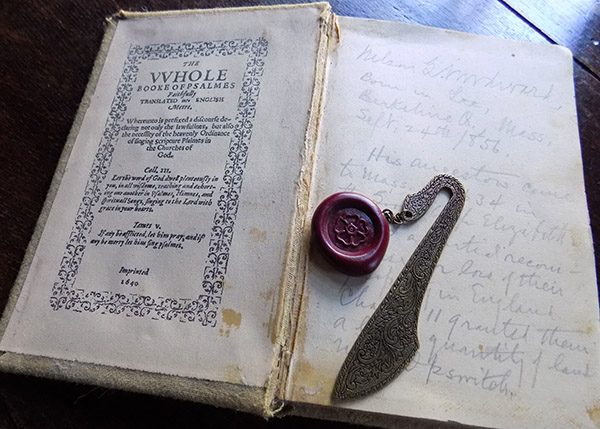 THE
VVHOLE
BOOKE OF PSALMES
Faithfully
TRANSLATED into ENGLISH
Metre.
Whereunto is prefixed a discourse de-
claring not only the lawfullnes, but also
the necessity of the heavenly Ordinance
of singing Scripture Psalmes in
the Churches of
God.
Coll. III.
Let the word of God dwell plenteously in
you, in all wisdome, teaching and exhort-
ing one another in Psalmes, Himnes, and
spirituall Songs, singing to the Lord with
grace in your hearts.
Iames v.
If any be afflicted, let him pray, and if
any be merry let him sing psalmes.
Imprinted
1640
Woodward,
Born
Berkshire Co. Mass,
Sept 24th 1856
His ancestors came
to Mass 34 in
Elizabeth
recom-
for love of their
in England
Cha II granted them
a quantity of land
Ipswitch.